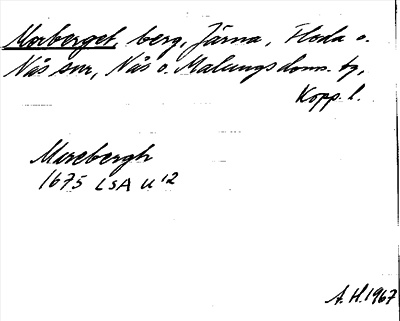 Morberget, berg, Järna, Floda o.
Nås snr, Nås o. Malungs doms. tg,
Kopp. l.
Morebergh
1675 LSA U 12
A.H. 1967